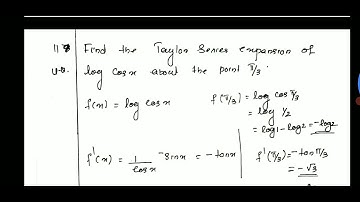 11) Find the Taylor Series expansion of
U.Q. log cosx about the point π/3.
f(x) = log cosx f(π/3) = log cos π/3
= log 1/2
= log1 - log2 = -log2
f'(x) = 1/cosx -sinx = -tanx f'(π/3) = -tan π/3
= -√3